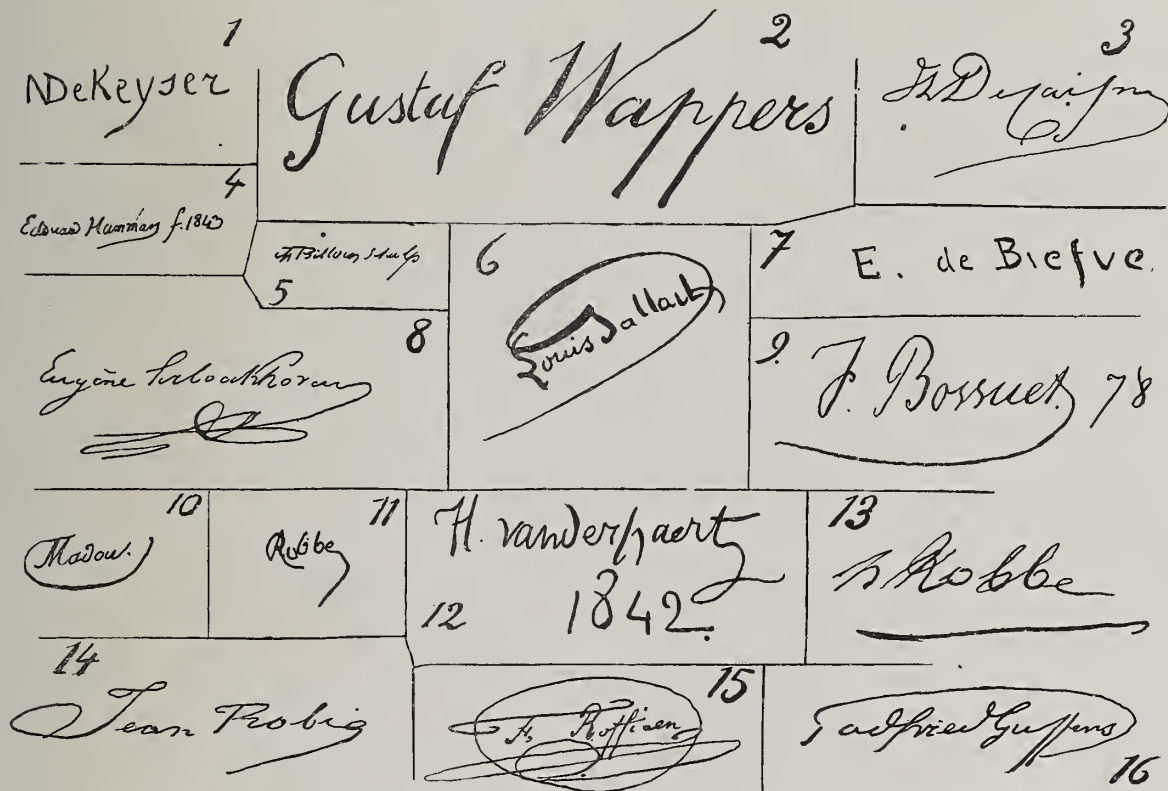 1
NDeKeyser
2
Gustaf Wappers
3
4
Edouard Hamman f. 1843
5
6
Louis Gallait
7
E. de Biefve.
8
Eugène Verboeckhoven
9.
F. Bossuet 78
10
Madou.
11
Robbe
12
H. vanderpaert
1842.
13
h Robbe
14
Jean Robie
15
F. Roffiaen
16
Godfried Guffens